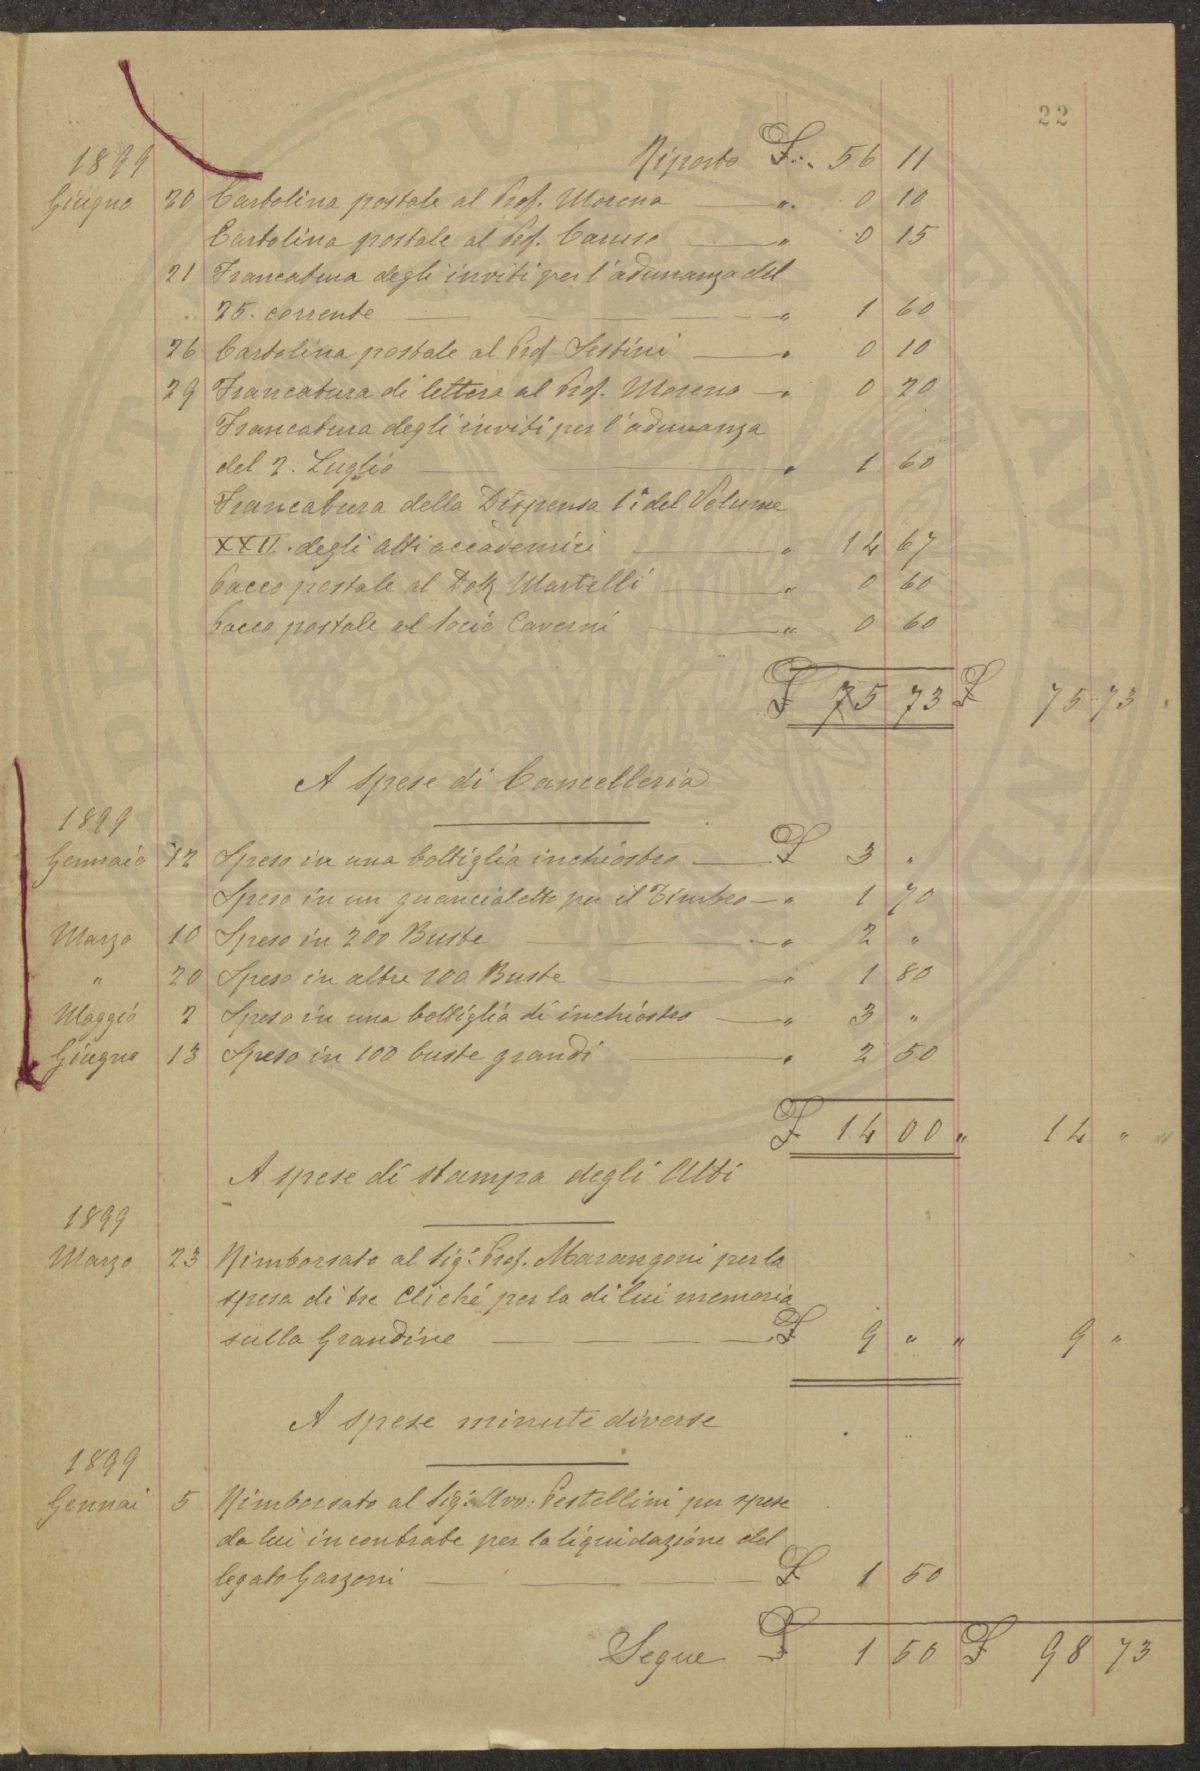 22
1899 Riporto £ 56 11
Giugno 20 Cartolina postale al Prof. Morena " 0 10
Cartolina postale al Prof. Caruso " 0 15
21 Francatura degli inviti per l'adunanza del
25. corrente " 1 60
26 Cartolina postale al Prof. Sestini " 0 10
29 Francatura di lettera al Prof. Moreno " 0 20
Francatura degli inviti per l'adunanza
del 2. Luglio " 1 60
Francatura della Dispensa 1ª del Volume
XXII. degli Atti accademici " 14 67
Pacco postale al Dott Martelli " 0 60
Pacco postale al Socio Caverni " 0 60
£ 75 73 £ 75 73
A spese di Cancelleria
1899
Gennaio 12 Speso in una bottiglia inchiostro £ 3 "
Speso in un guancialetto per il Timbro " 1 70
Marzo 10 Speso in 200 Buste " 2 "
" 20 Speso in altre 100 Buste " 1 80
Maggio 2 Speso in una bottiglia di inchiostro " 3 "
Giugno 13 Speso in 100 buste grandi " 2 50
£ 14 00 " 14 "
A spese di stampa degli Atti
1899
Marzo 23 Rimborsato al Sig. Prof. Marangoni per la
spesa di tre Cliché per la di lui memoria
sulla Grandine £ 9 " " 9 "
A spese minute diverse
1899
Gennai 5 Rimborsato al Sig. Avv. Pestellini per spese
da lui incontrate per la liquidazione del
legato Garzoni £ 1 50
Segue £ 1 50 £ 98 73